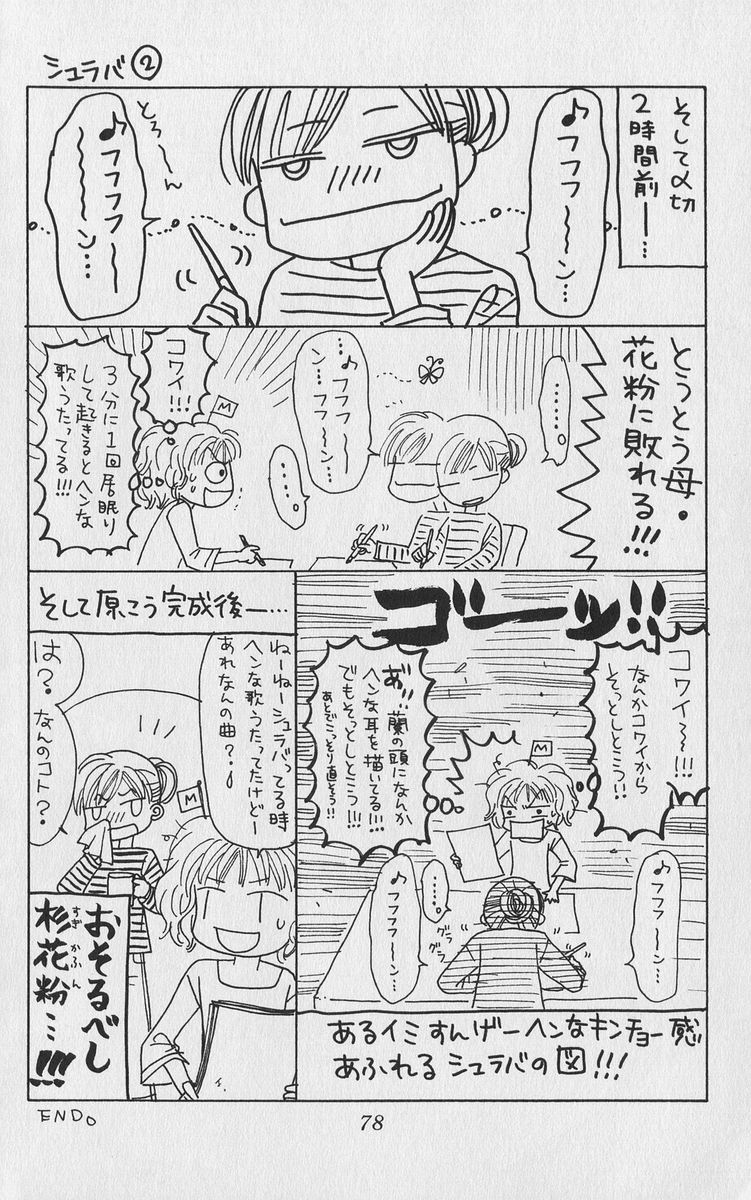 シュラバ②
そして〆切
2時間前―…
♪フフフ〜〜ン…
♪フフフフ―
〜〜〜ン…
とろ〜〜ん
とうとう母・
花粉に敗れる!!!
……。
♪フフフ〜
ン…フフ〜ン
…。
M
コワイ!!!
3分に1回居眠り
して起きるとヘンな
歌うたってる!!!
ゴーッ!!
コワイ〜〜!!!
なんかコワイから
そっとしとこう!!
あ"!!蘭の頭になんか
ヘンな耳を描いてる!!!
でもそっとしとこう!!!
あとでこっそり直そう!!
M
♪フフフ〜〜ン…
……。
♪フフフフ〜〜ン…
グラ
グラ
あるイミすんげーヘンなキンチョー感
あふれるシュラバの図!!!
そして原こう完成後―…
ねーねーシュラバってる時
ヘンな歌うたってたけどー
あれなんの曲?
は?なんのコト?
M
おそるべし
杉花粉…!!!
すぎかふん
END。
78